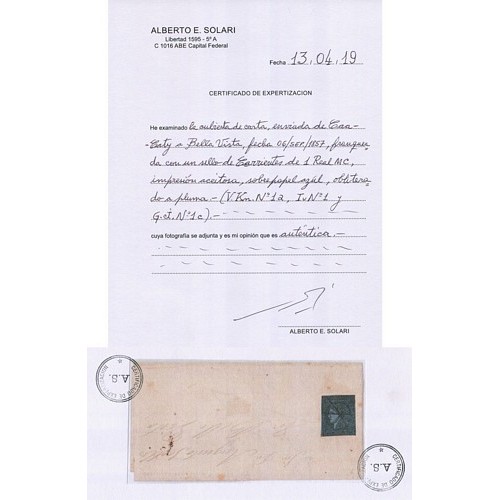 ALBERTO E. SOLARI
Libertad 1595 - 5º A
C 1016 ABE Capital Federal
Fecha 13.04.19
CERTIFICADO DE EXPERTIZACION
He examinado la cubierta de carta, enviada de Caa-
Caty a Bella Vista, fecha 06/SEP./1857, franquea
da con un sello de Corrientes de 1 Real MC,
impresión aceitosa, sobre papel azul, oblitera-
do a pluma - (V.Kn. Nº 1a, Iv Nº 1 y
G. et. Nº 1c) -
cuya fotografía se adjunta y es mi opinión que es auténtica. -
ALBERTO E. SOLARI
CERTIFICADO DE EXPERTIZACION
A.S.
CERTIFICADO DE EXPERTIZACION
A.S.